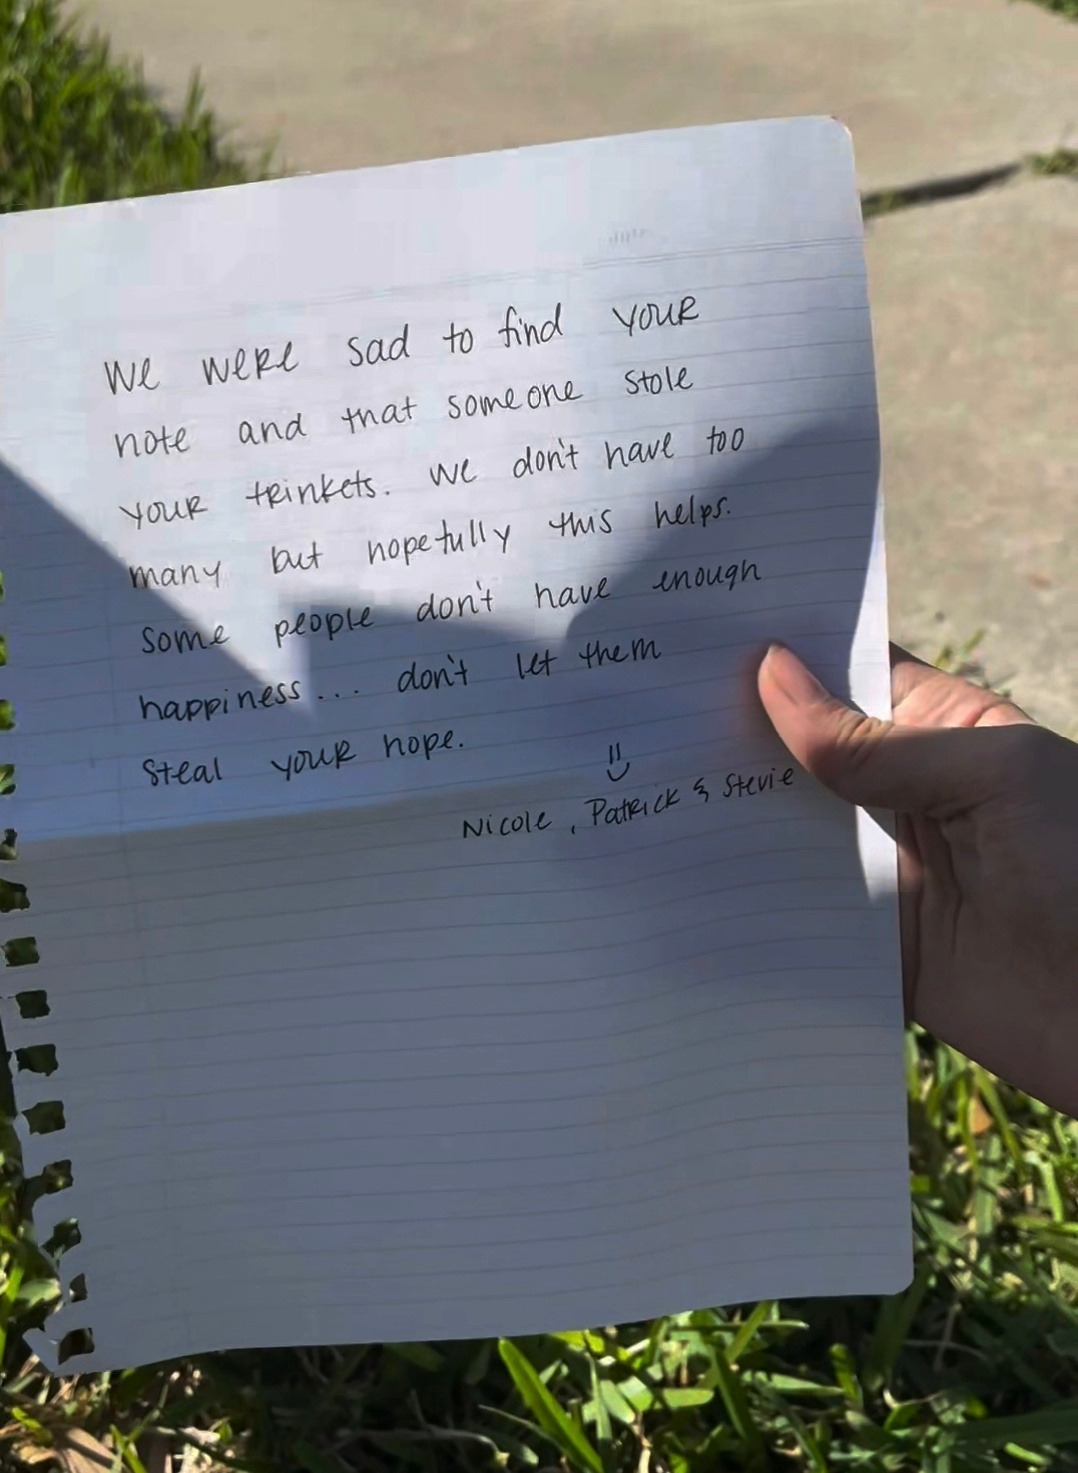 We were sad to find your
note and that someone stole
your trinkets. We don't have too
many but hopefully this helps.
Some people don't have enough
happiness... don't let them
steal your hope.
=)
Nicole, Patrick & Stevie